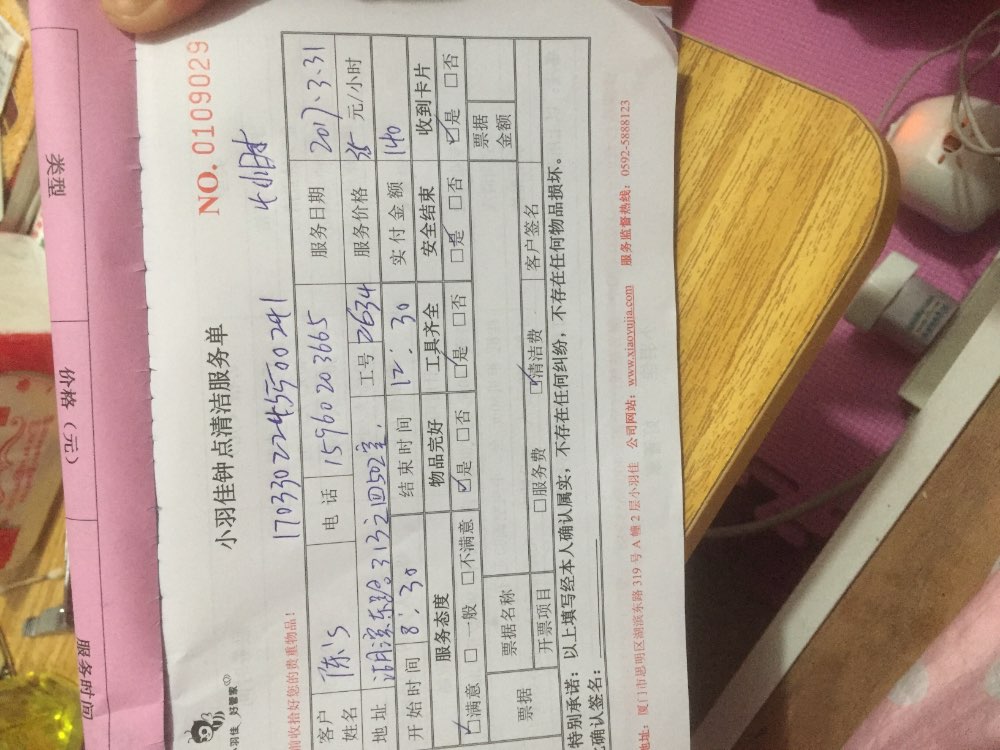 类型
价格（元）
服务时间
小羽佳 好管家
小羽佳钟点清洁服务单
NO. 0109029
17033022455500241
4小时
前收拾好您的贵重物品！
客户姓名 陈's 电话 15960203665 服务日期 2017.3.31
地址 湖滨东路313之四502室. 工号 2634 服务价格 35 元/小时
开始时间 8:30 结束时间 12:30 实付金额 140
服务态度 物品完好 工具齐全 安全结束 收到卡片
☑满意 □一般 □不满意 ☑是 □否 ☑是 □否 ☑是 □否 ☑是 □否
票据 票据名称 票据金额
开票项目 □服务费 ☑清洁费 客户签名
特别承诺：以上填写经本人确认属实，不存在任何纠纷，不存在任何物品损坏。
确认签名：
地址：厦门市思明区湖滨东路 319 号 A 幢 2 层小羽佳 公司网站：www.xiaoyujia.com 服务监督热线：0592-5888123